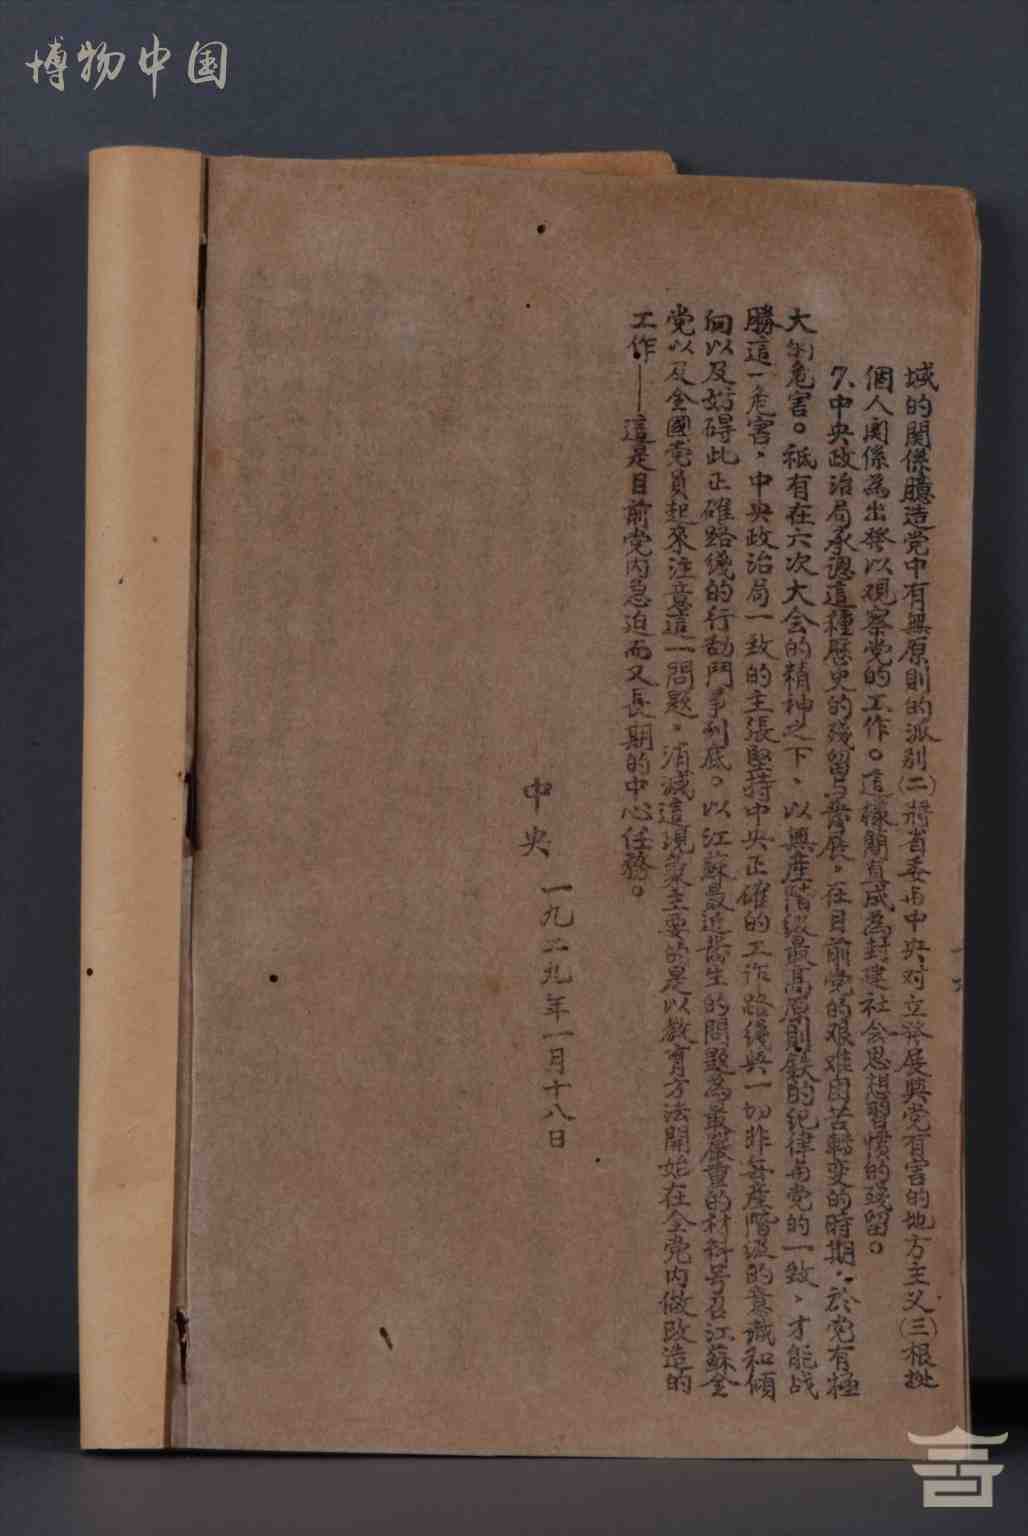 博物中国
域的関係臆造党中有無原則的派别(二)將省委与中央对立發展與党有害的地方主义(三)根拠
個人関係為出發以观察党的工作。這樣簡直成為封建社会思想習慣的殘留。
7、中央政治局承認這種歷史的殘留与發展,在目前党的艰难困苦轉变的時期,於党有極
大的危害。祗有在六次大会的精神之下、以無産階級最高原則鉄的紀律与党的一致,才能战
勝這一危害,中央政治局一致的主張堅持中央正確的工作路綫與一切非無産階級的意識和傾
向以及妨碍此正確路綫的行動鬥争到底。以江蘇最近發生的問題為最嚴重的材料号召江蘇全
党以及全國党員起來注意這一問題。消滅這現象主要的是以教育方法開始在全党内做改造的
工作——這是目前党内急迫而又長期的中心任務。
中央
一九二九年一月十八日